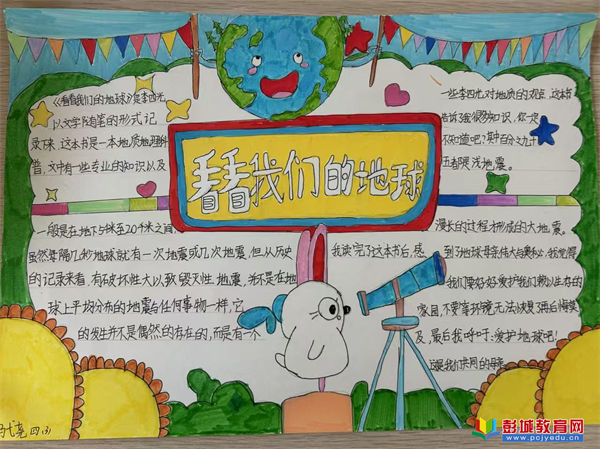 看看我们的地球
《看看我们的地球》是李四光
以文学随笔的形式记
录球.这本书是一本地质地理科
普，文中有一些专业的知识以及
一些李四光对地质的观点，这本书
告诉我很多知识，你一定
不知道吧？其中百分之九十
五都是浅地震。
一般是在地下5千米至20千米之间，
虽然每隔几秒地球就有一次地震或几次地震，但从历史
的记录来看，有破坏性大以致毁灭性地震，并不是在地
球上平均分布的地震与任何事物一样，它
的发生并不是偶然的存在的，而是有一个
漫长的过程才形成的大地震。
我读完了这本书后，感
到了地球母亲伟大与奥秘，我觉得
我们要好好爱护我们赖以生存的
家园，不要等环境无法恢复了再后悔莫
及，最后我呼吁：爱护地球吧！
这是我们共同的母亲
四(3)
彭城教育网
www.pcjyedu.cn